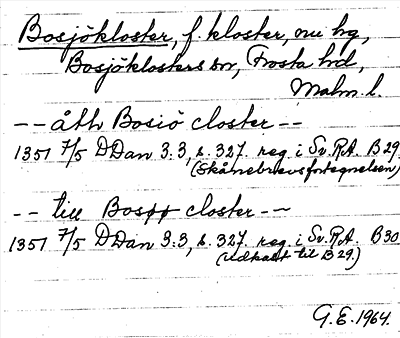 Bosjökloster, f. kloster, nu hg,
Bosjöklosters sn, Frosta hd,
Malm. l.
-- åth Bosiö closter --
1351 7/5 DDan 3:3, s. 327. reg. i Sv.R.A. B 29
(Skånebrevsfortegnelsen)
-- till Bosøø closter --
1351 7/5 DDan 3:3, s. 327. reg. i Sv.R.A. B 30
(udkast til B 29.)
G.E. 1964.